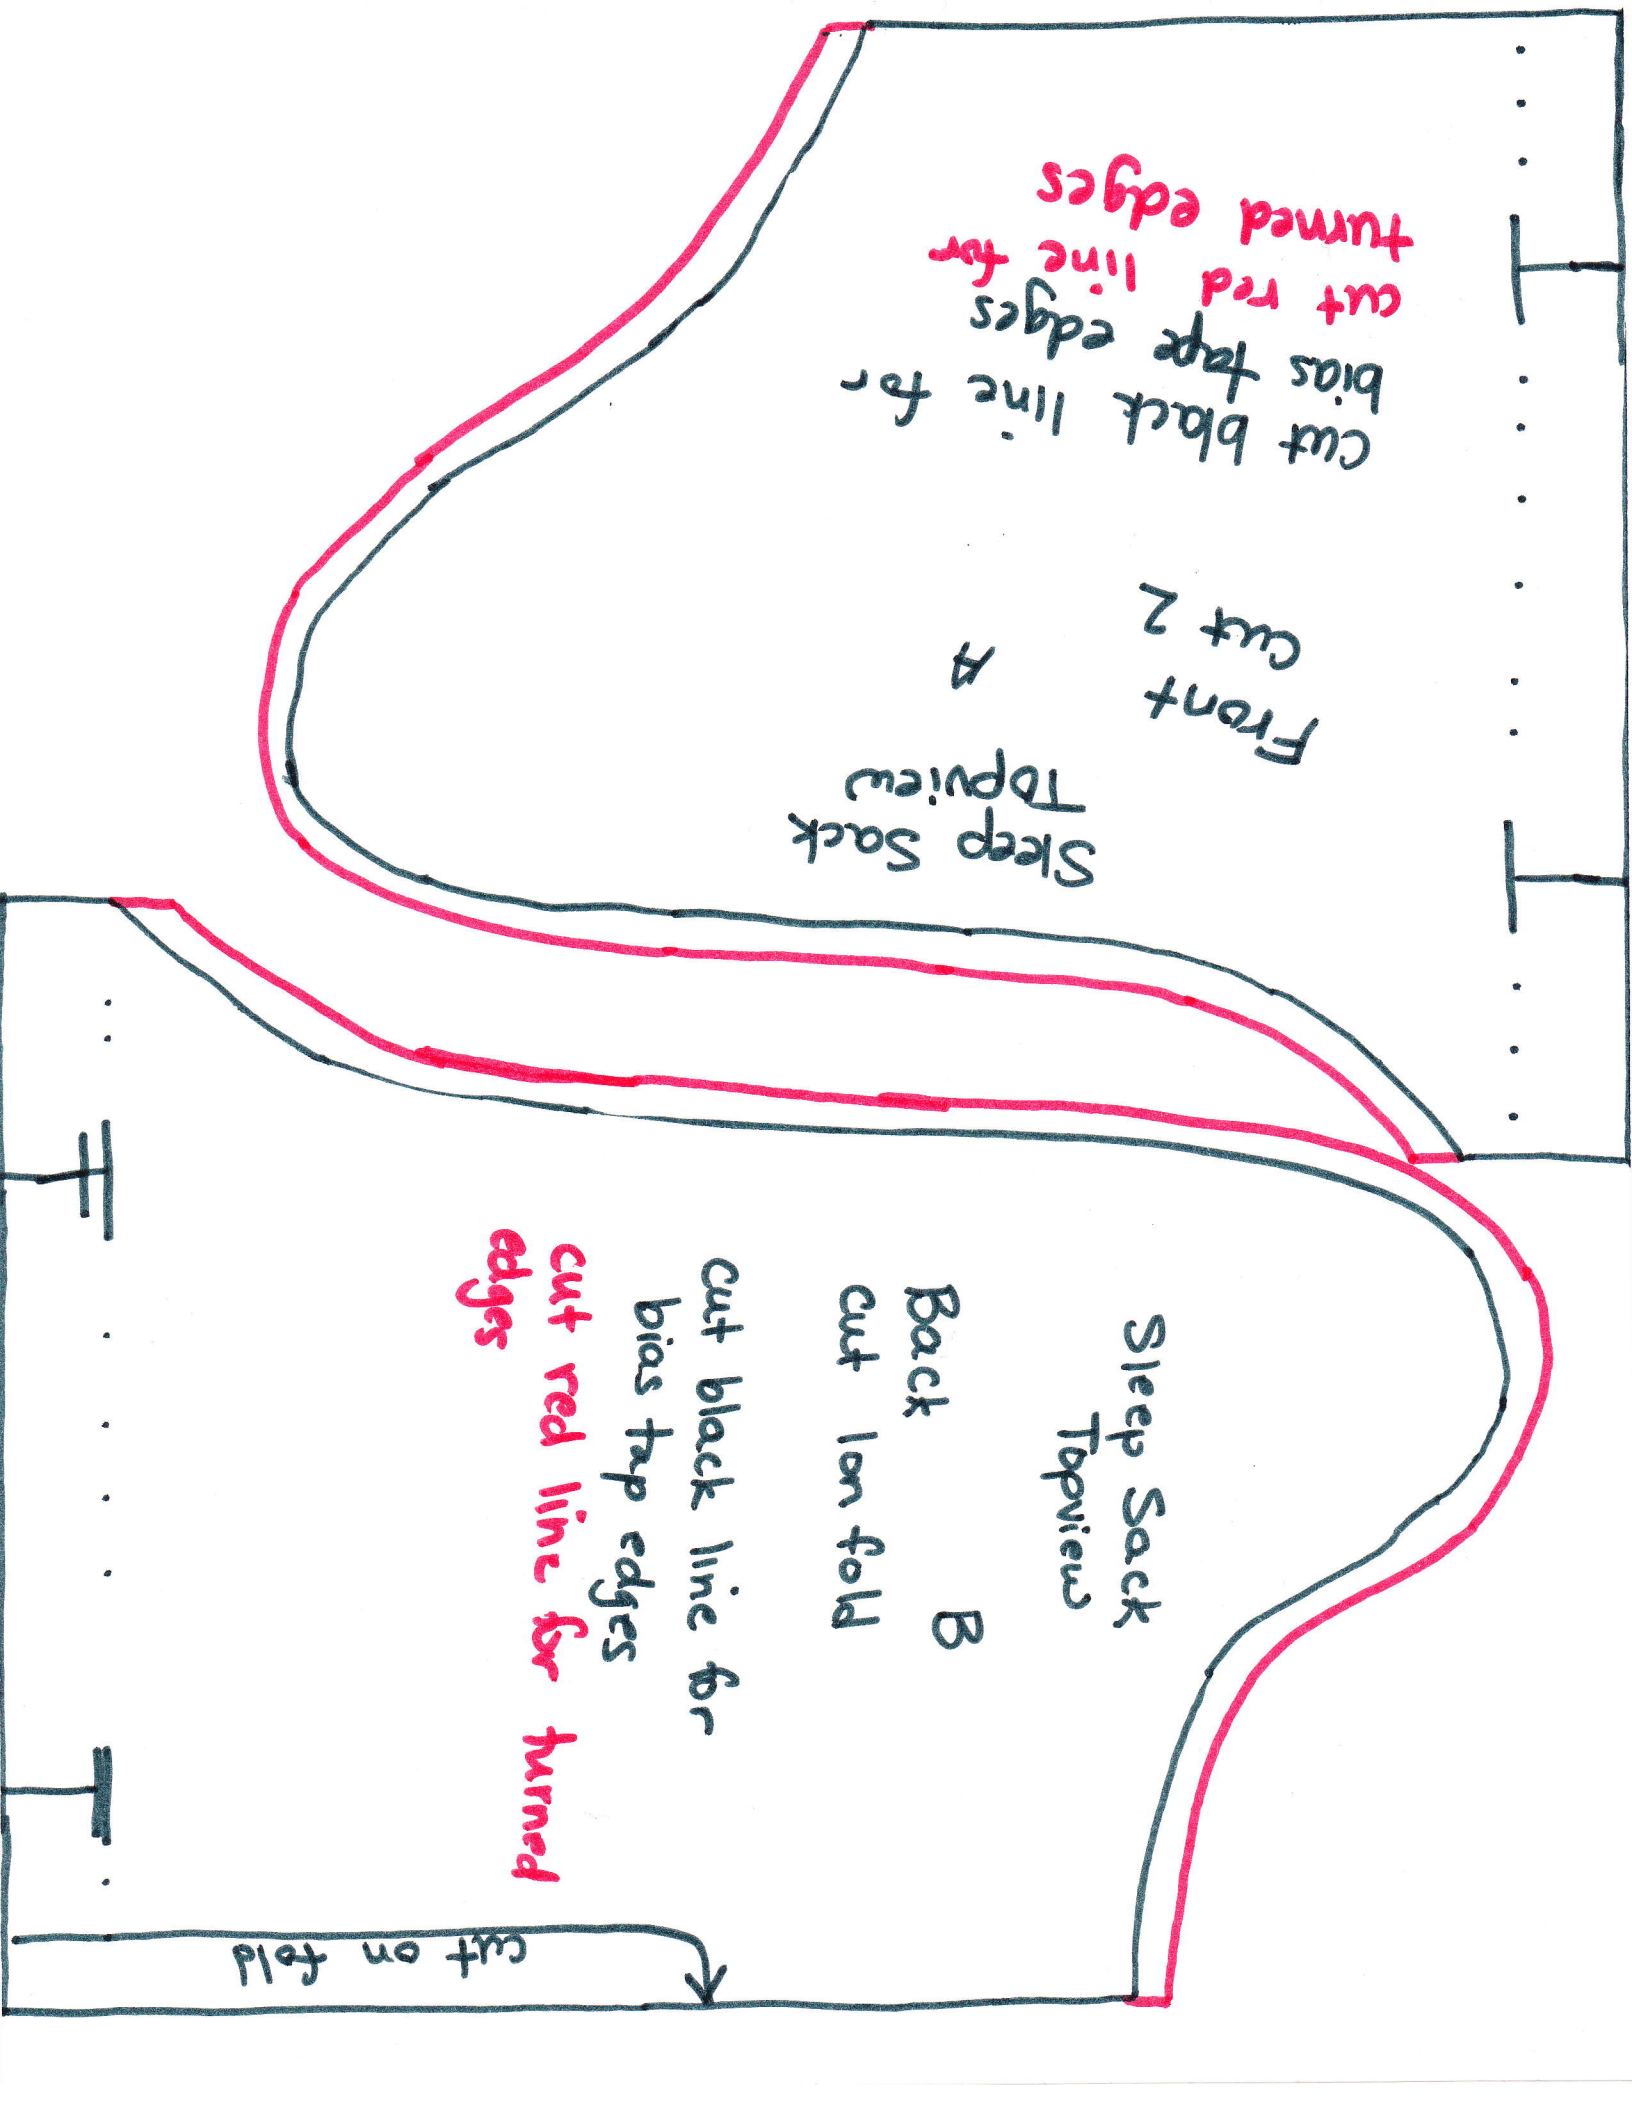 Sleep Sack
Topview
A
Front
cut 2
cut black line for
bias tape edges
cut red line for
turned edges
Sleep Sack
Topview
Back
B
cut 1on fold
cut black line for
bias tap edges
cut red line for turned
edges
cut on fold